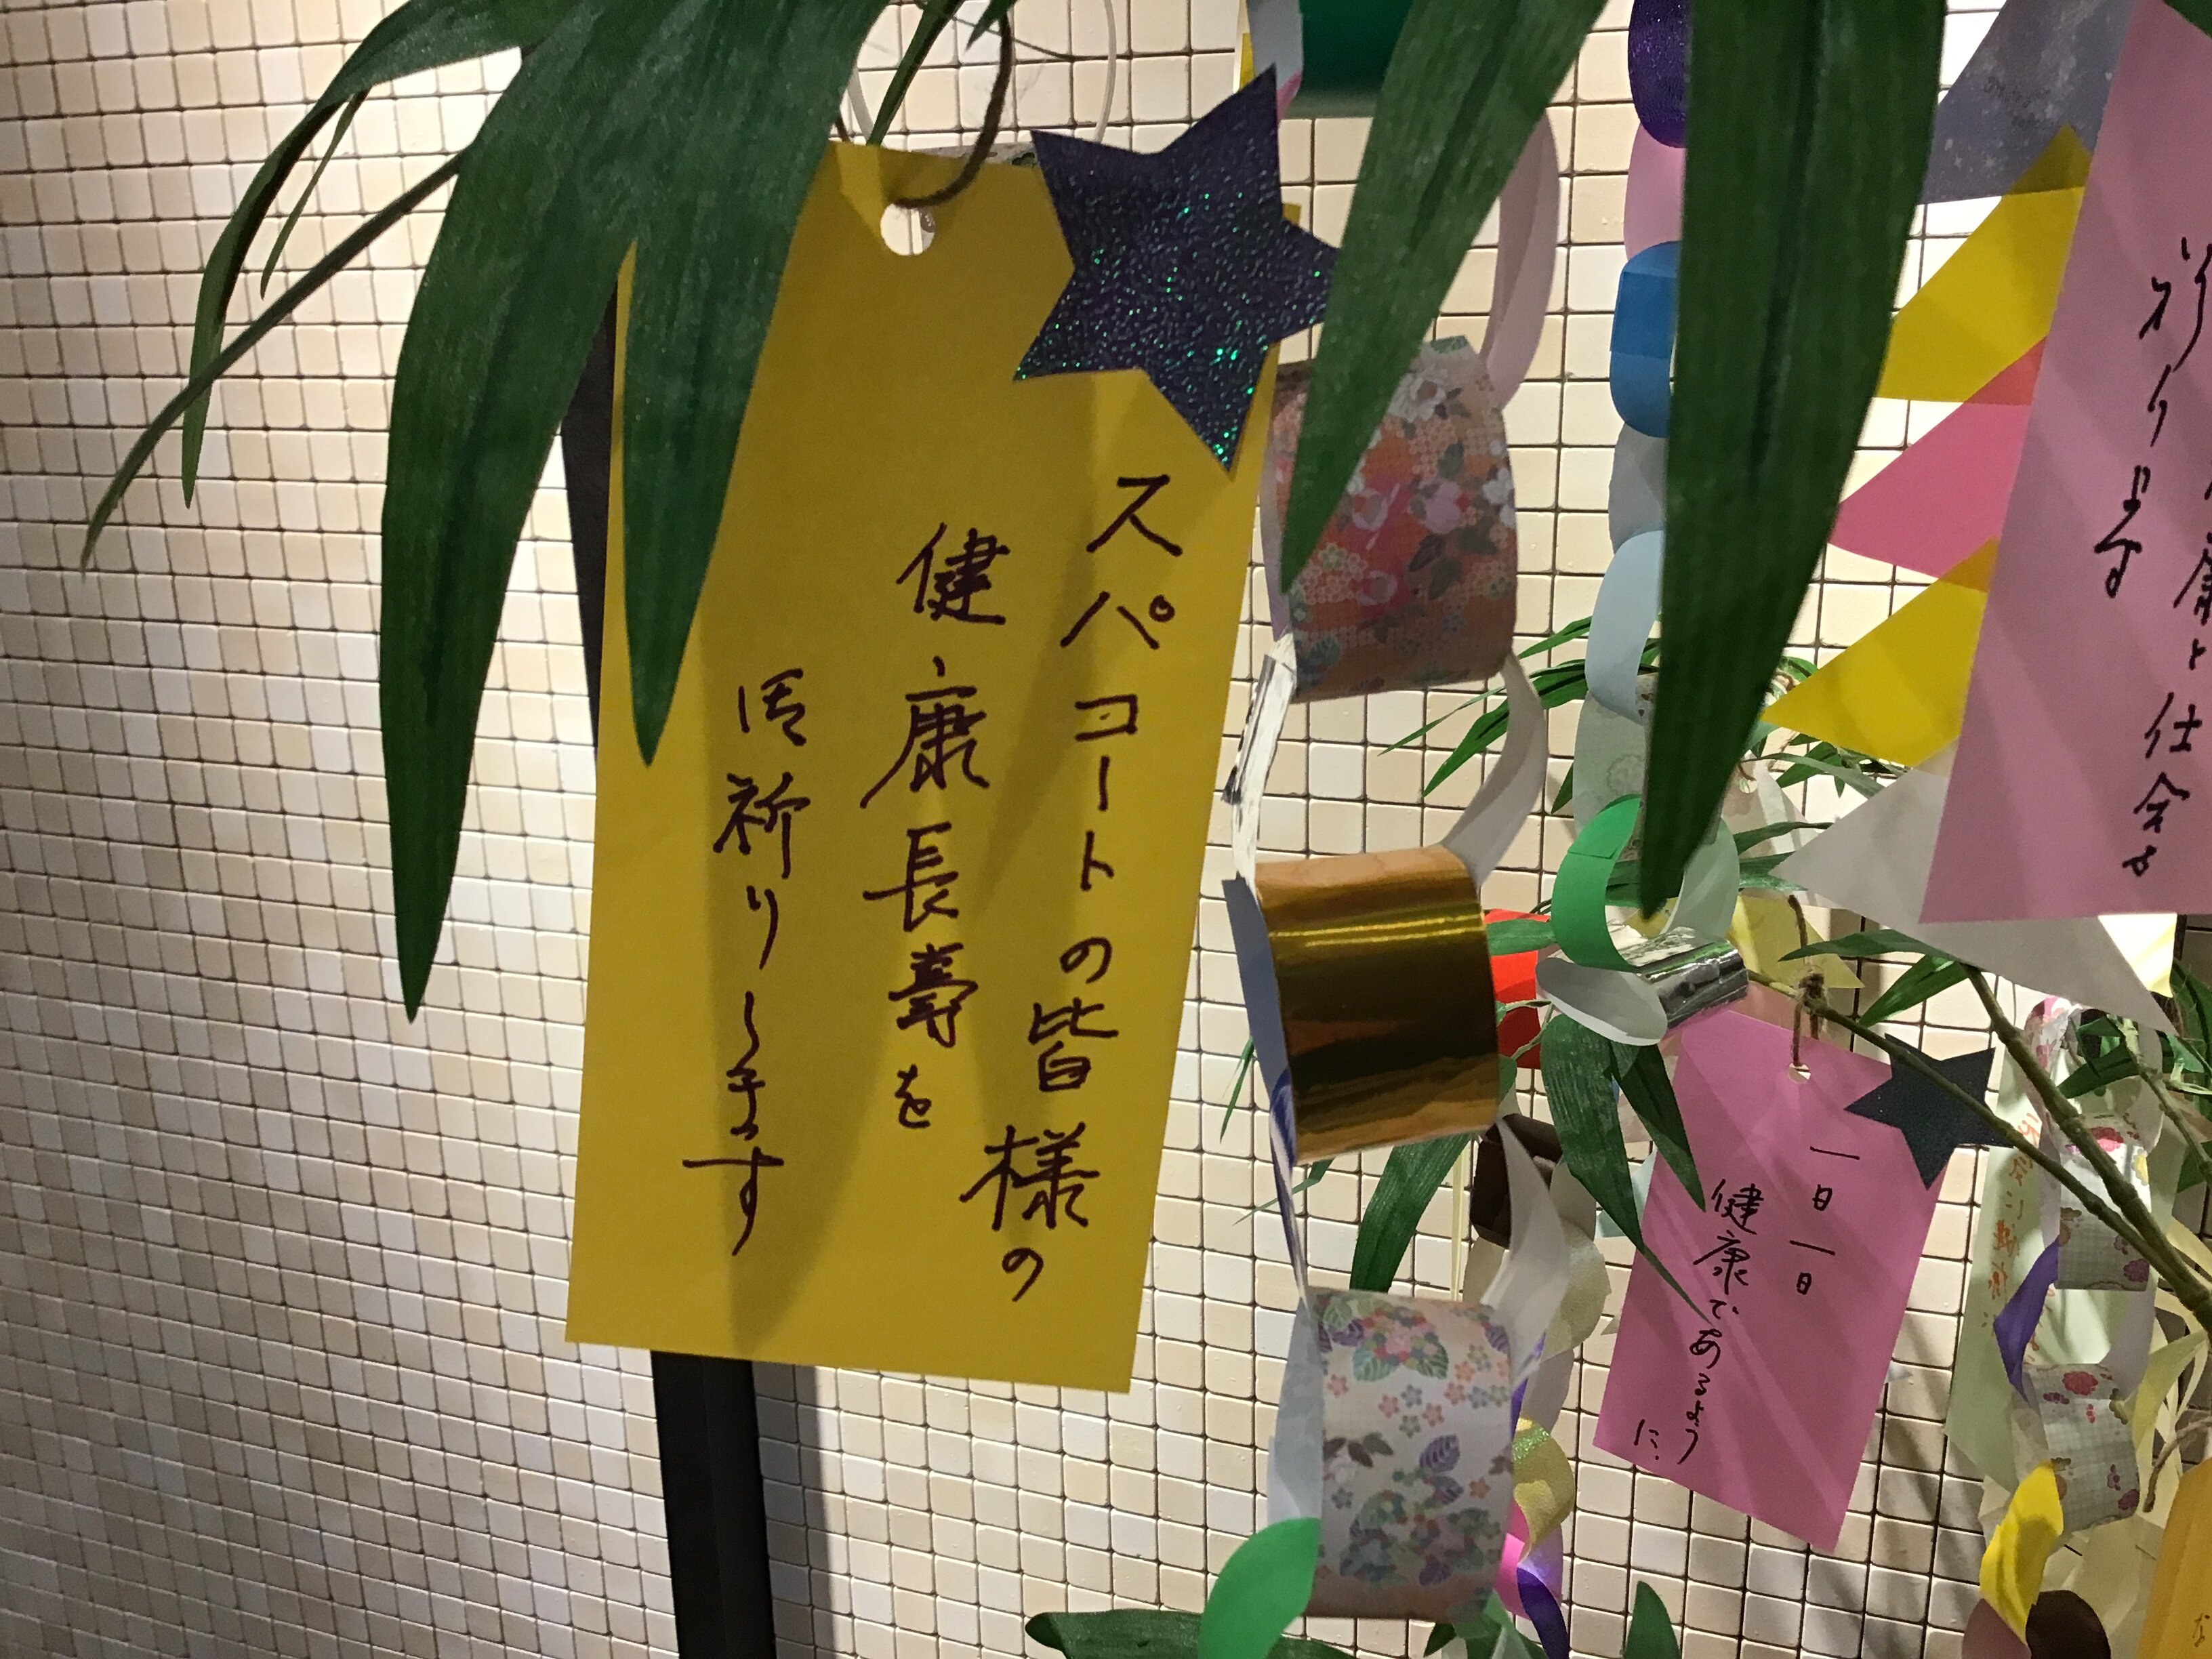 スパコートの皆様の
健康長壽を
お祈りします
一日一日
健康であるよう
に
祈ります
康と仕会よ